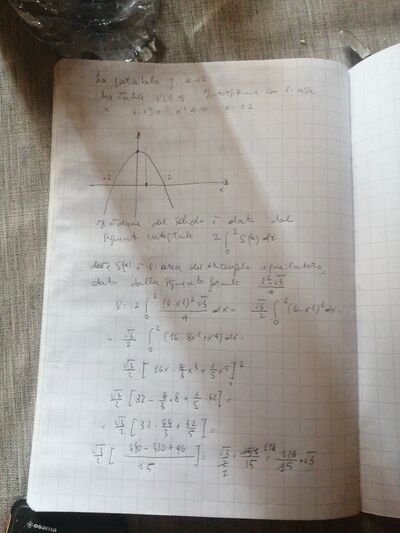 La parabola y = 4-x²
ha vertice V(0,4) Intersezione con l'asse
x 4-x²=0 x²-4=0 x=±2
-2 2 x
Il volume del solido è dato dal
seguente integrale 2∫₀² S(x) dx
dove S(x) è l'area del triangolo equilatero
data dalla seguente formula l²·√3/4
V = 2∫₀² (4-x²)²√3/4 dx = √3/2 ∫₀² (4-x²)² dx =
= √3/2 ∫₀² (16-8x²+x⁴) dx =
√3/2 [16x - 8/3 x³ + 1/5 x⁵]₀²
√3/2 [32 - 8/3 · 8 + 1/5 · 32] =
= √3/2 [32 - 64/3 + 32/5] =
√3/2 [480-320+96/15] = √3/2 · 256/15 128 = 128/15 · √3
osama